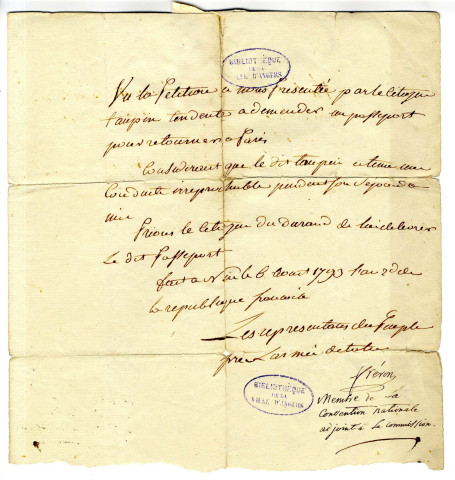 BIBLIOTHÈQUE
DE LA
VILLE D'ANGERS
Vu la Petition a nous Presentée par le Citoyen
taupin tendente a demender un passeport
pour retourner a Paris
Considerent que le dit taupin a tenu une
Conduite irreprochable pendent son sejour a
nice
Prions le Citoyen du durand de lui delivrer
le dit Passeport
fait a Nice le 6 aout 1793 l'an 2 de
la republique francaise
Les representans du Peuple
près L'armée d'italie
Fréron
Membre de la
Convention nationale
adjoint à la commission.
BIBLIOTHÈQUE
DE LA
VILLE D'ANGERS